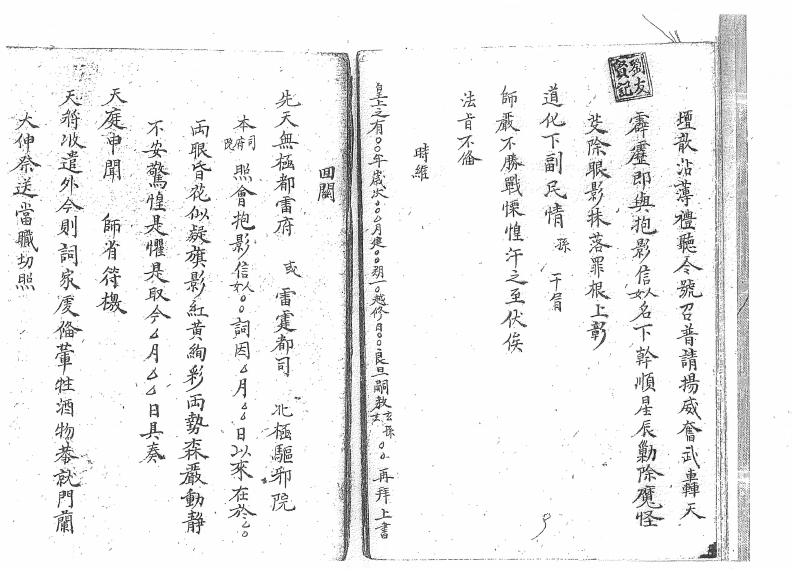 劉友寶記
壇歆沾薄禮聽令號召普請揚威奮武轟天
霹靂即與抱影信如名下幹順星辰勦除魔怪
芟除眼影抹落罪根上彰
道化下副民情孫 干冒
師嚴不勝戰慄惶汗之至伏俟
法旨不俻
時維
皇上之有〇〇年歲次〇〇厶月建〇〇朔一〇越修日〇〇良旦嗣教玄孫〇〇再拜上書
回關
先天無極都雷府 或 雷霆都司 北極驅邪院
本府院司 照會抱影信如〇〇詞因厶月厶日以來在於〇〇
両眼昏花似凝旗影紅黃絢彩両勢森嚴動靜
不安驚惶是懼是取今厶月厶厶日具奏
天庭申聞 師省待機
天將收遣外今則詞家虔俻葷牲酒物恭就門蘭
大伸祭送當職切照